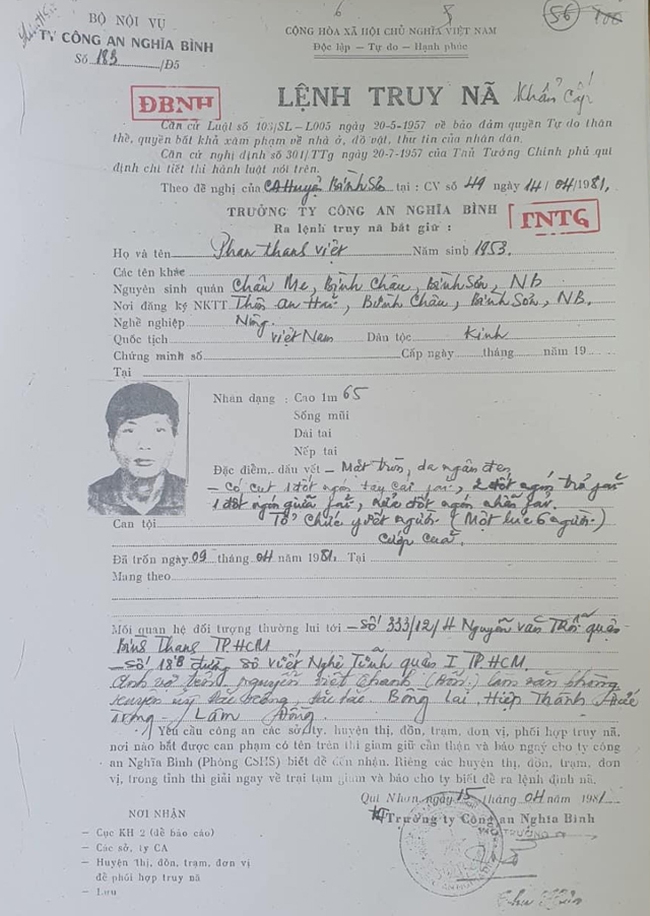 BỘ NỘI VỤ
TY CÔNG AN NGHĨA BÌNH
Số 183 /Đ5
6 8 56
CỘNG HÒA XÃ HỘI CHỦ NGHĨA VIỆT NAM
Độc lập — Tự do — Hạnh phúc
ĐBNH
LỆNH TRUY NÃ Khẩn Cấp
Căn cứ Luật số 103/SL—L005 ngày 20-5-1957 về bảo đảm quyền Tự do thân
thể, quyền bất khả xâm phạm về nhà ở, đồ vật, thư tín của nhân dân.
Căn cứ nghị định số 301/TTg ngày 20-7-1957 của Thủ Tướng Chính phủ qui
định chi tiết thi hành luật nói trên.
Theo đề nghị của CA Huyện Bình Sơn tại : CV số 49 ngày 14/04/1981.
TRƯỞNG TY CÔNG AN NGHĨA BÌNH
TNTG
Ra lệnh truy nã bắt giữ :
Họ và tên Phan thanh Việt Năm sinh 1953.
Các tên khác
Nguyên sinh quán Châu Me, Bình Châu, Bình Sơn, NB
Nơi đăng ký NKTT Thôn An Hải, Bình Châu, Bình Sơn, NB.
Nghề nghiệp Nông.
Quốc tịch Việt Nam Dân tộc Kinh
Chứng minh số Cấp ngày tháng năm 19
Tại
Nhân dạng : Cao 1m 65
Sống mũi
Dái tai
Nếp tai
Đặc điểm, dấu vết — Mặt tròn, da ngăn đen
— Có cụt 1 đốt ngón tay cái fải, 2 đốt ngón trỏ fải
1 đốt ngón giữa fải, nửa đốt ngón nhẫn fải.
Can tội Tổ chức giết người (Một lúc 6 người)
cướp của.
Đã trốn ngày 09 tháng 04 năm 1981. Tại
Mang theo
Mối quan hệ đối tượng thường lui tới — Số 333/12/4 Nguyễn văn quận
Bình Thạnh TP.HCM
— Số 18B đường Sô viết Nghệ Tĩnh quận I TP.HCM.
Anh vợ tên nguyễn viết Thanh làm văn phòng
huyện ủy Bồng Lai, Hiệp Thạnh Đức
Trọng — Lâm Đồng.
Yêu cầu công an các sở, ty, huyện thị, đồn, trạm, đơn vị, phối hợp truy nã,
nơi nào bắt được can phạm có tên trên thì giam giữ cẩn thận và báo ngay cho ty công
an Nghĩa Bình (Phòng CSHS) biết để đến nhận. Riêng các huyện thị, đồn, trạm, đơn
vị, trong tỉnh thì giải ngay về trại tạm giam và báo cho ty biết để ra lệnh đình nã.
Qui Nhơn, ngày 15 tháng 04 năm 1981
Trưởng ty Công an Nghĩa Bình
NƠI NHẬN
— Cục KH 2 (để báo cáo)
— Các sở, ty CA
— Huyện thị, đồn, trạm, đơn vị
để phối hợp truy nã
— Lưu